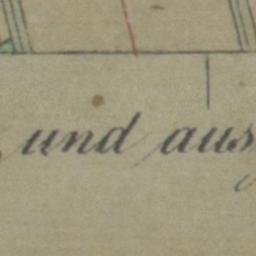 und aus